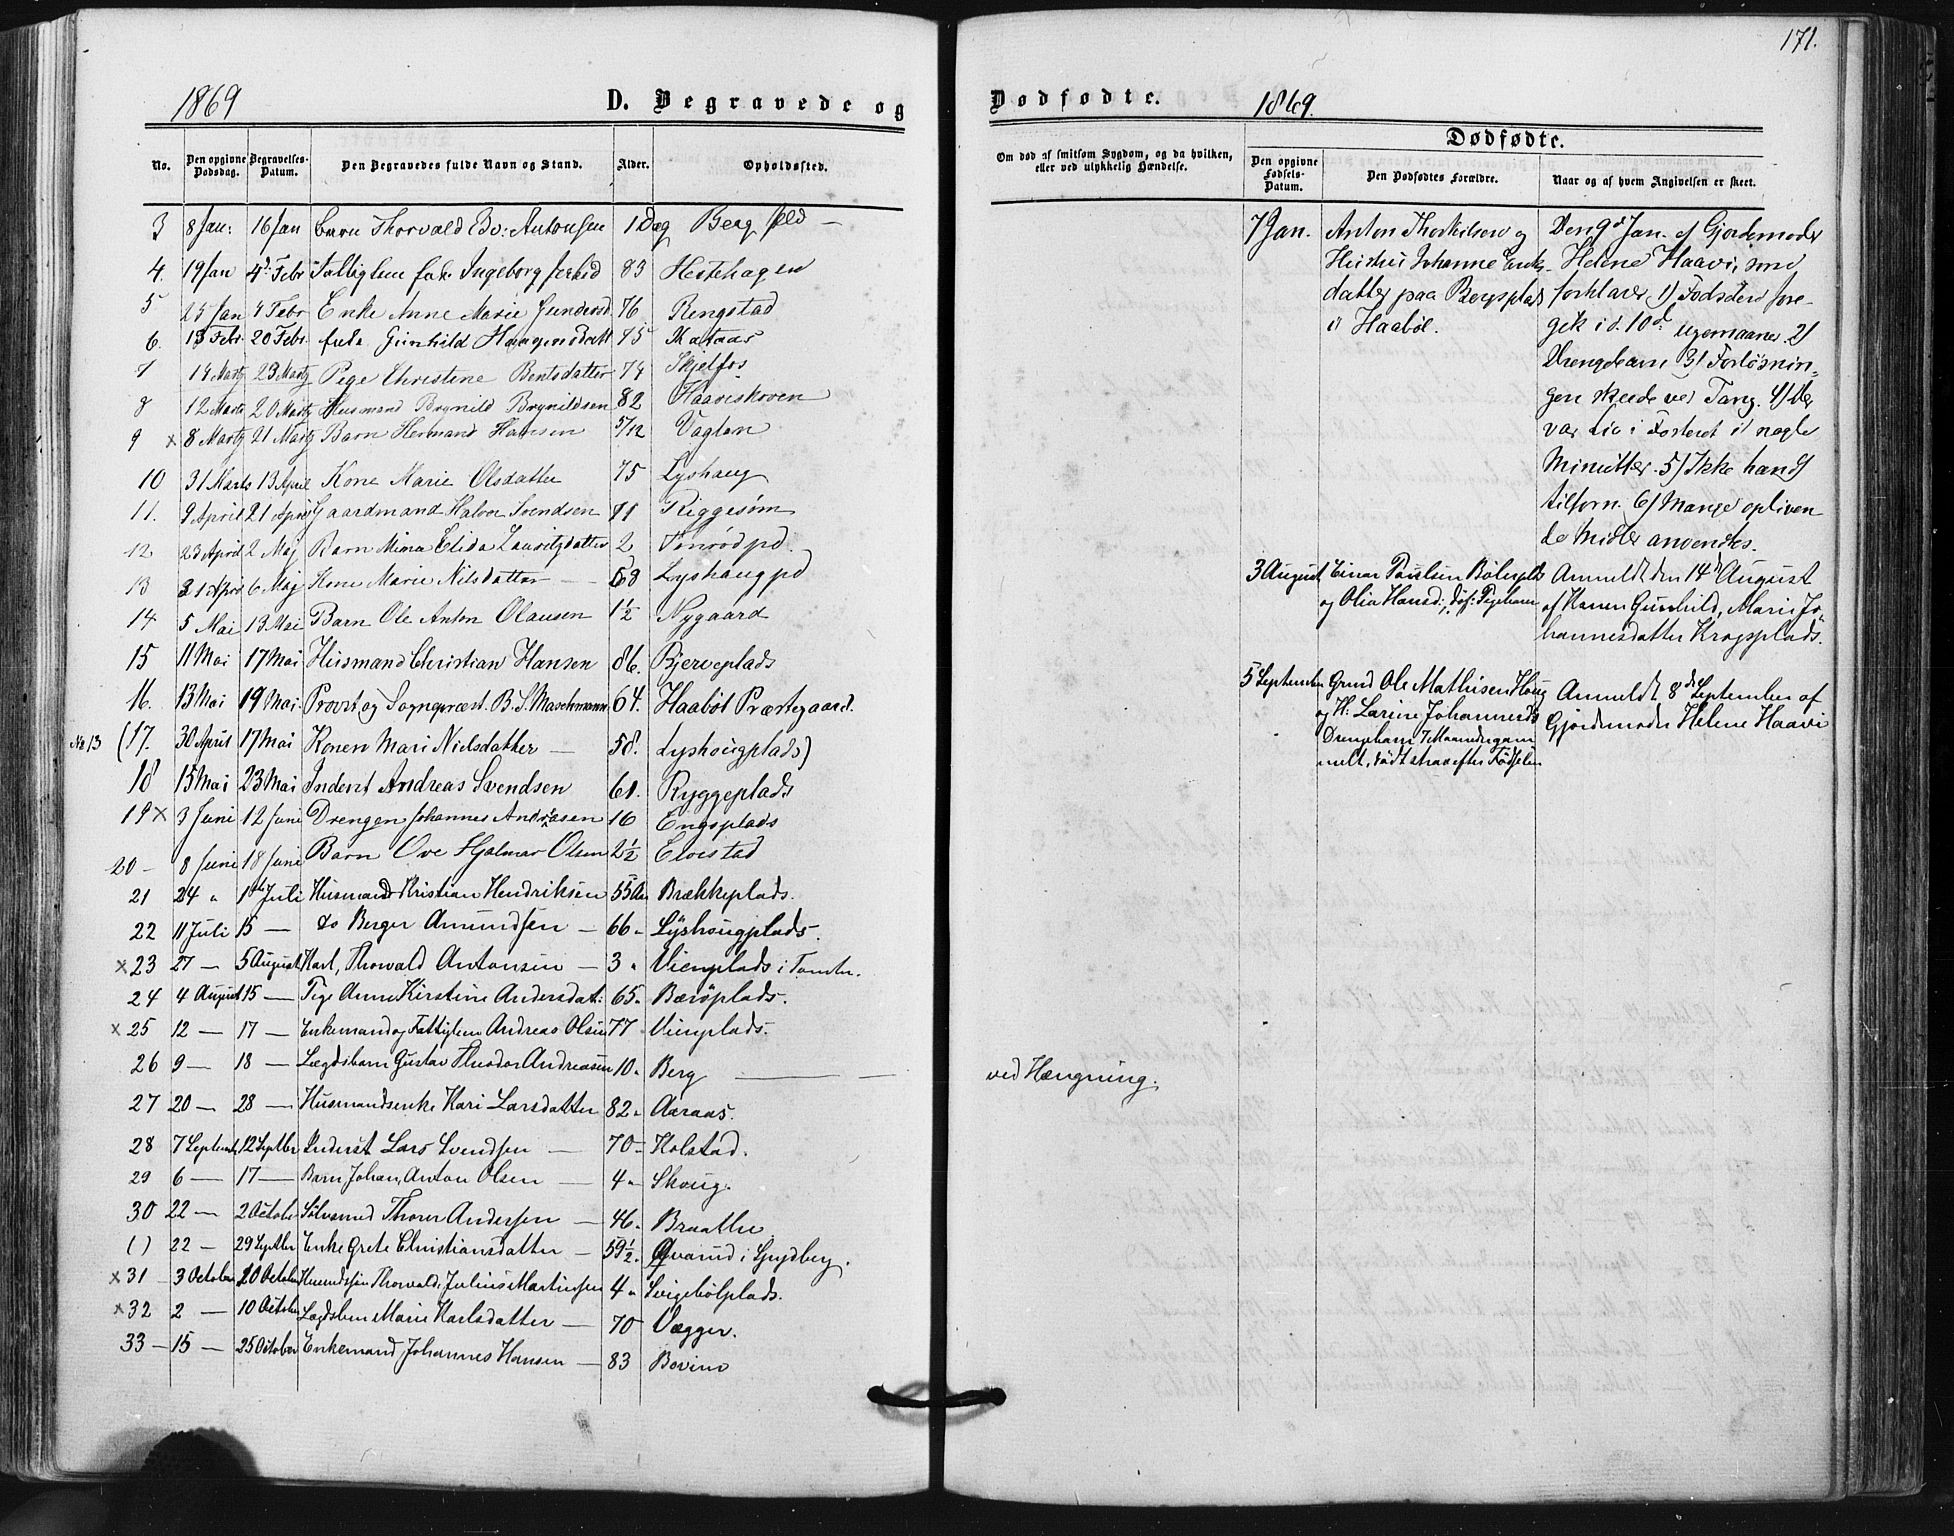 171.
1869 D. Begravede og Dødfødte. 1869.
Dødfødte.
No. Den opgivne Dødsdag. Begravelses-Datum. Den Begravedes fulde Navn og Stand. Alder. Opholdssted.
Om død af smitsom Sygdom, og da hvilken, eller ved ulykkelig Hændelse. Den opgivne Fødsels-Datum. Den Dødfødtes Forældre. Naar og af hvem Angivelsen er skeet.
3 8 Jan: 16 Jan Barn Thorvald Antonsen 1 Dag Berg
4. 19 Jan 4d Febr Ingeborg 83 Hestehagen
5 25 Jan 4 Febr Enke Anne Marie Gundersd 76 Rengstad
6. 13 Febr 20 Febr Gunhild Haagensdatt 75
7 14 Martz 23 Martz Pige Christine Bentsdatter 74 Skjelfos
8 12 Marts 20 Martz Husmand Brynild Brynildsen 82 Haaviskoven
9 x 8 Martz 21 Martz Barn Hermand Hansen 5/12 Vagten
10 31 Marts 13 April Kone Marie Olsdatter 75 Lyshaug
11. 9 April 21 April Gaardmand Halvor Svendsen 71
12 23 April 2 Maj Barn Mina Elida Lauritzdatter 2
13 21 April 6 Maj Kone Marie Nilsdatter — 58 Lyshaugpd
14 5 Mai 13 Mai Barn Ole Anton Olausen 1½ Nygaard
15 11 Mai 17 Mai Husmand Christian Hansen 86. Bjerveplads
16. 13 Mai 19 Mai Provst og Sognepræst B. S. Maschmann 64. Haabøl Præstegaard.
No 13 (17. 30 April 17 Mai Konen Mari Nielsdatter — 58. Lyshougplads)
18 15 Mai 23 Mai Inderst Andreas Svendsen 61. Ryggeplads
19 x 3 Juni 12 Juni Drengen Johannes Andreasen 16 Engsplads
20 — 8 Juni 18 Juni Barn Ove Hjalmar Olsen 2½
21 24 " 1ste Juli Husmand Kristian Hendriksen 55 Aar Brækkeplads.
22 11 Juli 15 — do Berger Amundsen — 66 " Lyshougplads.
x 23 27 — 5 August Karl, Thorvald Antonsen — 3 "
24 4 August 15 — Pige Anne Kirstine Andersdat: 65 "
x 25 12 — 17 — Enkemand og Fattiglem Andreas Olsen 77
26 9 — 18 — Lægdsbarn Gustav Theodor Andreasen 10 " Berg — ved Hængning.
27 20 — 28 — Husmandsenke Kari Larsdatter 82 " Aaraas.
28 7 Septemb. 12 Septbr Inderst Lars Svendsen — 70 — Holstad.
29 6 — 17 — Barn Johan, Anton Olsen — 4 " Skoug.
30 22 — 2 October Thorer Andersen — 46 " Braathe
( ) 22 — 29 Septbr Enke Grete Christiansdatter — 59½ " Qvarud i Spydberg.
x 31 3 October 10 October Thorvald, Julius Martinsen 4 " Svigebølplads.
x 32 2 — 10 October Lægdslem Marie Karlsdatter — 70 Vegger.
33 — 15 — 25 October Enkemand Johannes Hansen — 83
7 Jan. Anton Thorkilsen og
Hustru Johanne
datter paa Bergsplads
i Haabøl.
Den 9de Jan. af Gjordemoder
Helene Haavi, som
forklarer 1) Fødselen fore-
gik i d. 10de Ugemaaned. 2)
Drengebarn 3) Forløsnin-
gen skeede ved Tang. 4) Der
var Liv i Fosteret i nogle
Minutter. 5) Ikke hændt
tilforn. 6) Mange opliven-
de Midler anvendtes.
3 August Einar Paulsen Bølerpld
og Olia Hansd:, Pigebarn
Anmeldt den 14d August
af Konen Gunhild, Marie Jo-
hannesdatter Krogsplads.
5 September Ole Mathisen Houg
og H: Larine Johannesd
Drengebarn 7 Maaneder gam-
melt, dødt strax efter Fødselen
Anmeldt 8de September af
Gjordemoder Helene Haavi